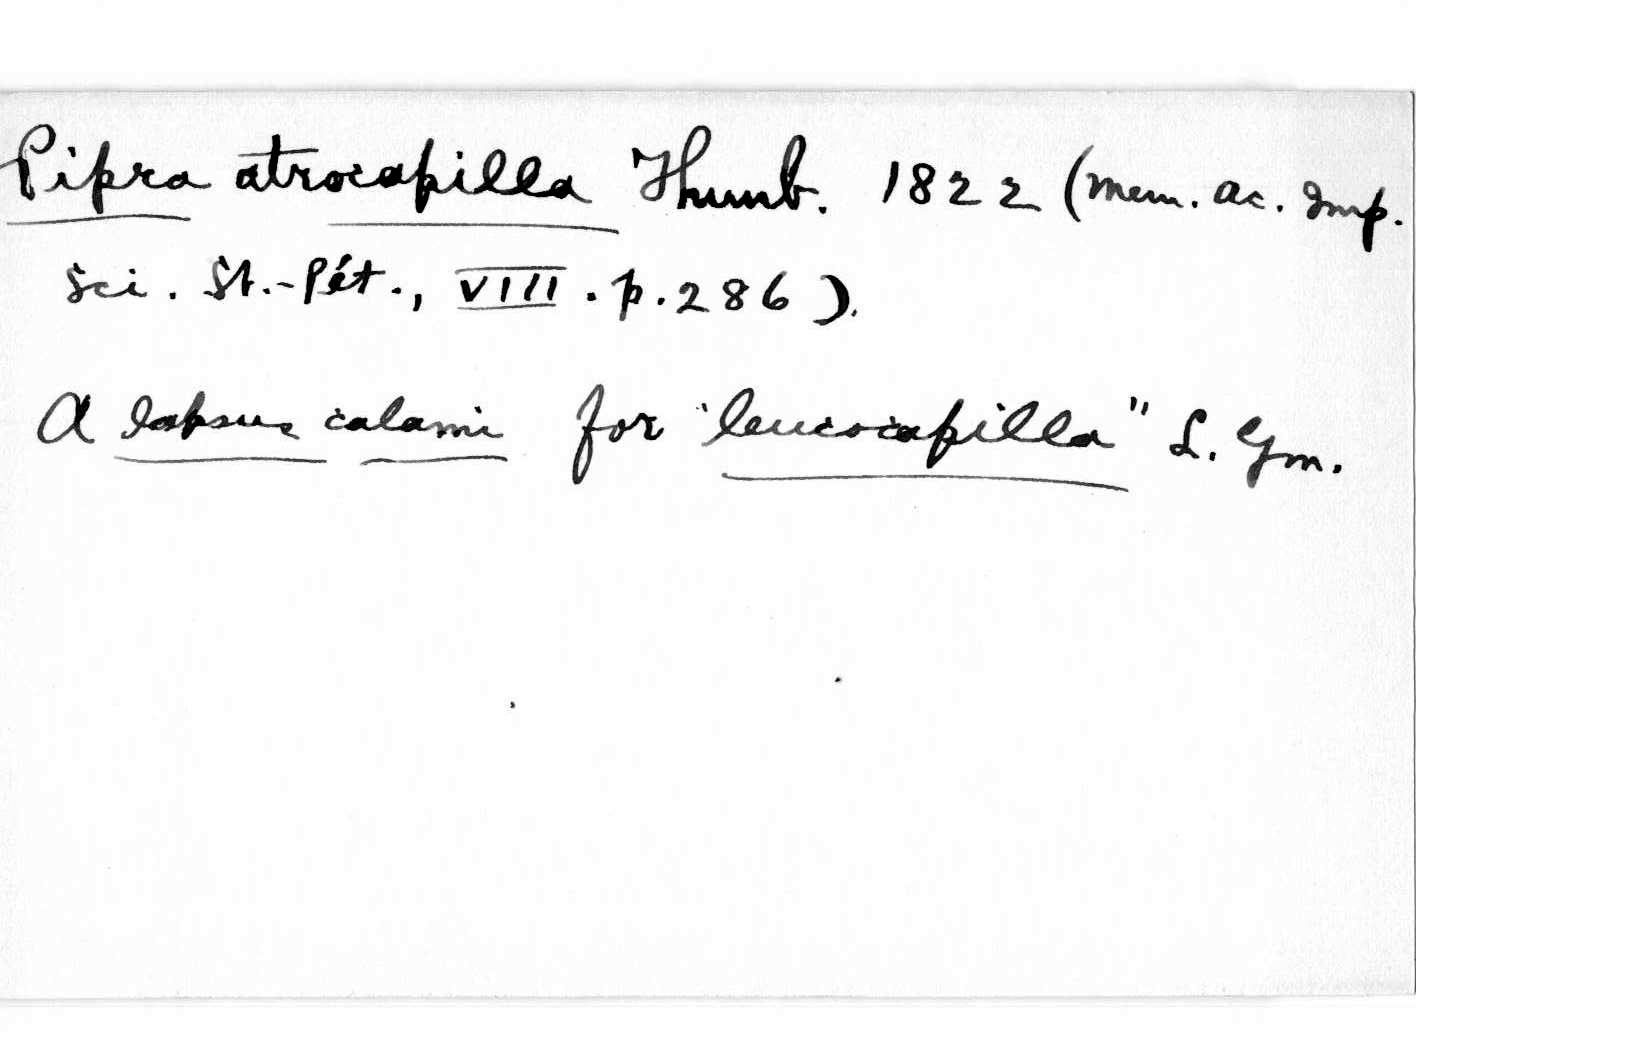 Pipra atrocapilla Thunb. 1822 (Mem. Ac. Imp.
Sci. St.-Pét., VIII. p. 286).
A lapsus calami for "leucocapilla" L. Gm.